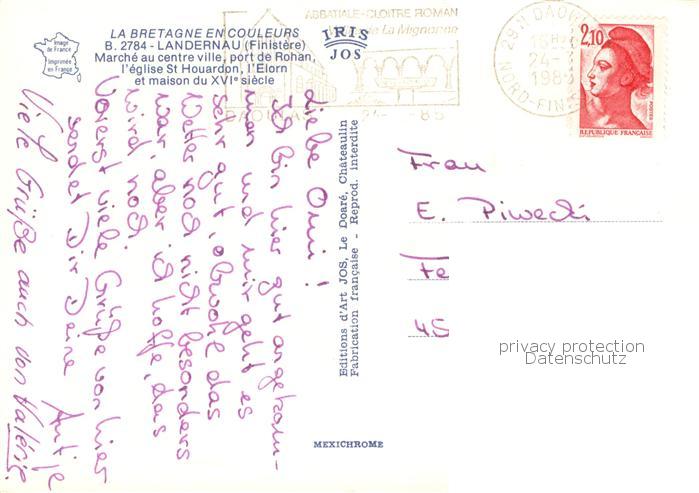 LA BRETAGNE EN COULEURS
B. 2784 - LANDERNAU (Finistère)
Marché au centre ville, port de Rohan,
l'église St Houardon, l'Elorn
et maison du XVIe siècle
Image
de France
Imprimée
en France
IRIS
JOS
ABBATIALE-CLOITRE ROMAN
de La Mignonne
29 N DAOU
24-
NORD-FIN
2,10
POSTES
REPUBLIQUE FRANÇAISE
Liebe Omi!
Ich bin hier gut angekom-
men und mir geht es
sehr gut, obwohl das
Wetter noch nicht besonders
war, aber ich hoffe, das
wird noch.
Vorerst viele Grüße von hier
sendet Dir Deine Antje
Viele Grüße auch von Valérie.
Editions d'Art JOS, Le Doaré, Châteaulin
Fabrication française - Reprod. interdite
Frau
E. Piwecki
Fe
45
privacy protection
Datenschutz
MEXICHROME